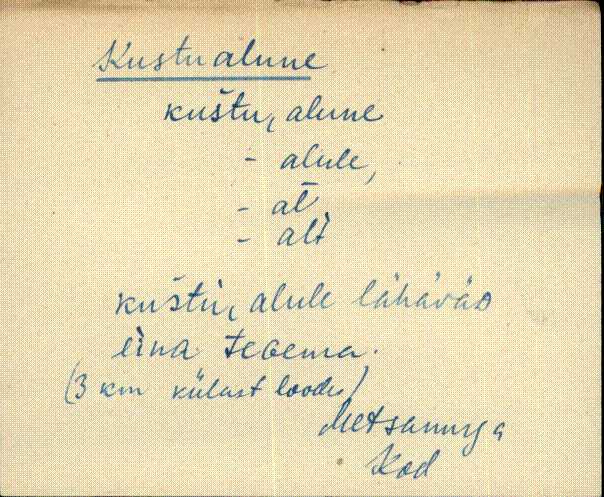 Kustualune
kuštu, alune
- alule,
- al̄
- alt
kuštu, alule lähäväD
eina tegema.
(3 km külast loodes)
Metsanurga
Kod